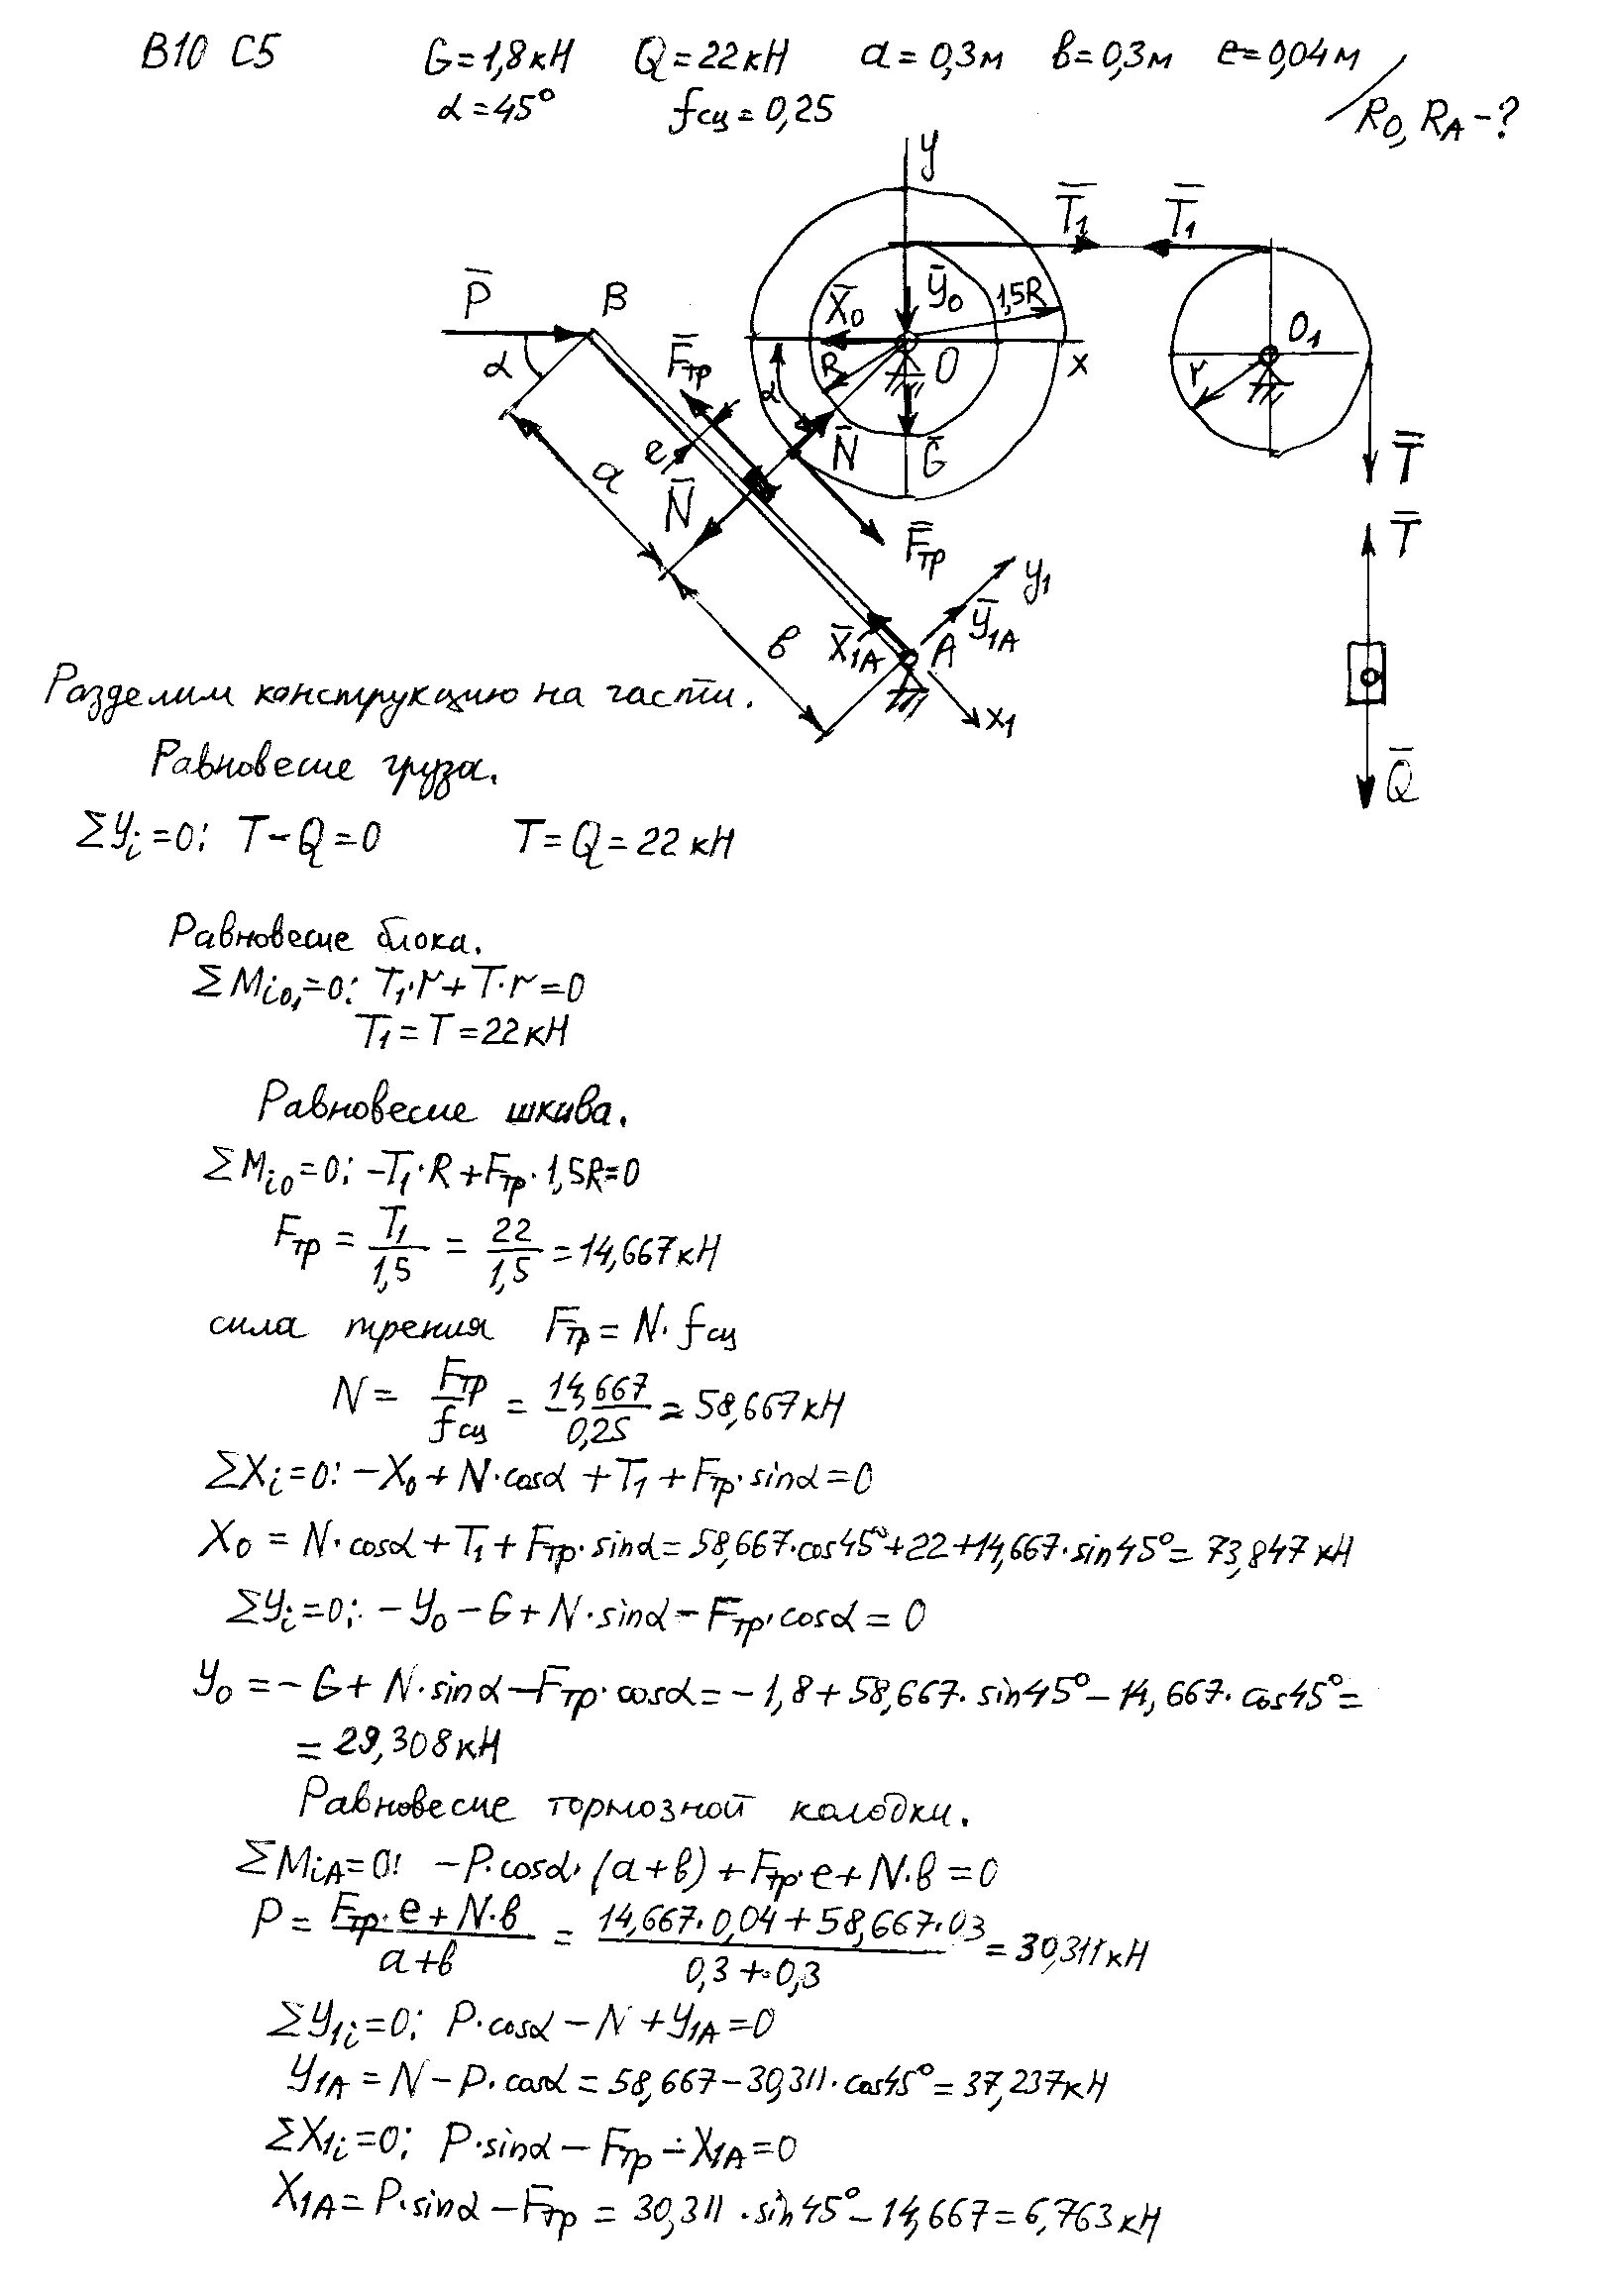 В10 С5 G=1,8кН Q=22кН a=0,3м в=0,3м e=0,04м
α=45° fсц=0,25 R0, RA-?
y
T̅1 T̅1
P̅ B F̅тр X̅0 Y̅0 1,5R O1
α R O x r
α
e N̅ G̅
a N̅ T̅
F̅тр T̅
y1
в X̅1A A Y̅1A
x1
Q̅
Разделим конструкцию на части.
Равновесие груза.
ΣYi=0: T-Q=0 T=Q=22кН
Равновесие блока.
ΣMiO1=0: T1·r+T·r=0
T1=T=22кН
Равновесие шкива.
ΣMiO=0: -T1·R+Fтр·1,5R=0
Fтр = T1/1,5 = 22/1,5 = 14,667кН
сила трения Fтр=N·fсц
N = Fтр/fсц = 14,667/0,25 = 58,667кН
ΣXi=0: -X0+N·cosα+T1+Fтр·sinα=0
X0 = N·cosα+T1+Fтр·sinα=58,667·cos45°+22+14,667·sin45°=73,847кН
ΣYi=0: -Y0-G+N·sinα-Fтр·cosα=0
Y0 = -G+N·sinα-Fтр·cosα=-1,8+58,667·sin45°-14,667·cos45°=
= 29,308кН
Равновесие тормозной колодки.
ΣMiA=0: -P·cosα·(a+в)+Fтр·e+N·в=0
P = Fтр·e+N·в/a+в = 14,667·0,04+58,667·03/0,3+0,3 = 30,311кН
ΣY1i=0: P·cosα-N+Y1A=0
Y1A=N-P·cosα=58,667-30,311·cos45°=37,237кН
ΣX1i=0: P·sinα-Fтр-X1A=0
X1A=P·sinα-Fтр=30,311·sin45°-14,667=6,763кН